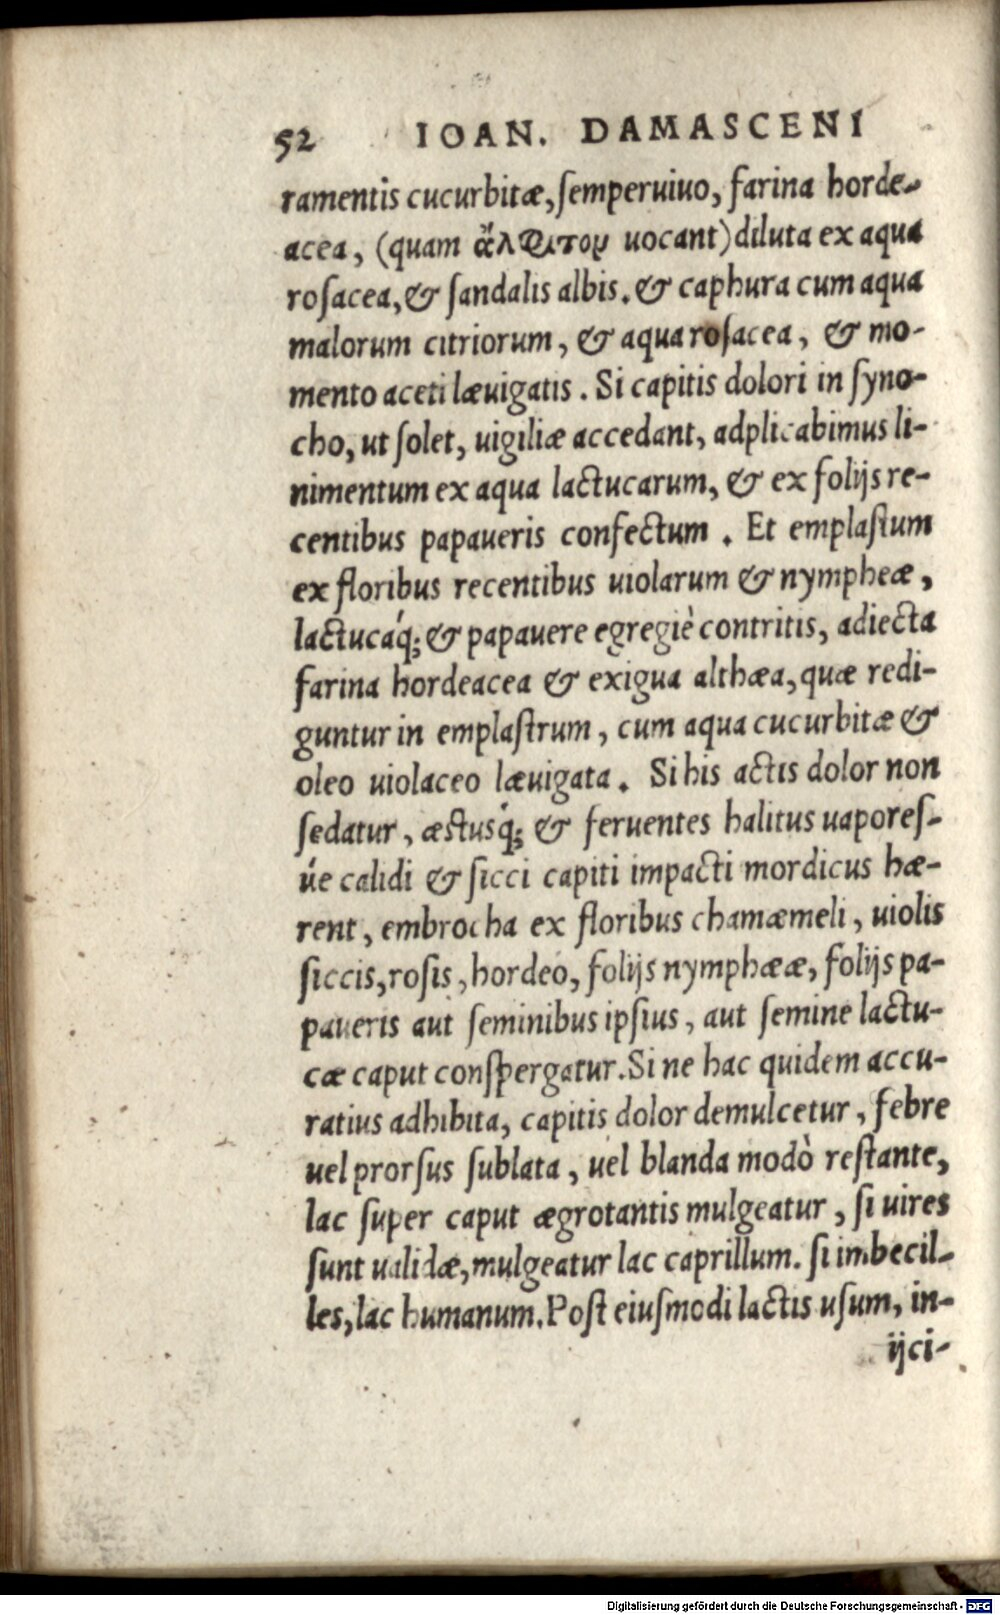 52 IOAN. DAMASCENI
ramentis cucurbitæ, semperuiuo, farina horde-
acea, (quam ἄλφιτον uocant) diluta ex aqua
rosacea, & sandalis albis. & caphura cum aqua
malorum citriorum, & aqua rosacea, & mo-
mento aceti læuigatis. Si capitis dolori in syno-
cho, ut solet, uigiliæ accedant, adplicabimus li-
nimentum ex aqua lactucarum, & ex folijs re-
centibus papaueris confectum. Et emplastum
ex floribus recentibus uiolarum & nympheæ,
lactucáq; & papauere egregiè contritis, adiecta
farina hordeacea & exigua althæa, quæ redi-
guntur in emplastrum, cum aqua cucurbitæ &
oleo uiolaceo læuigata. Si his actis dolor non
sedatur, æstusq́; & feruentes halitus uapores-
úe calidi & sicci capiti impacti mordicus hæ-
rent, embrocha ex floribus chamæmeli, uiolis
siccis, rosis, hordeo, folijs nymphææ, folijs pa-
paueris aut seminibus ipsius, aut semine lactu-
cæ caput conspergatur. Si ne hac quidem accu-
ratius adhibita, capitis dolor demulcetur, febre
uel prorsus sublata, uel blanda modò restante,
lac super caput ægrotantis mulgeatur, si uires
sunt ualidæ, mulgeatur lac caprillum. si imbecil-
les, lac humanum. Post eiusmodi lactis usum, in-
ijci-
Digitalisierung gefördert durch die Deutsche Forschungsgemeinschaft - DFG